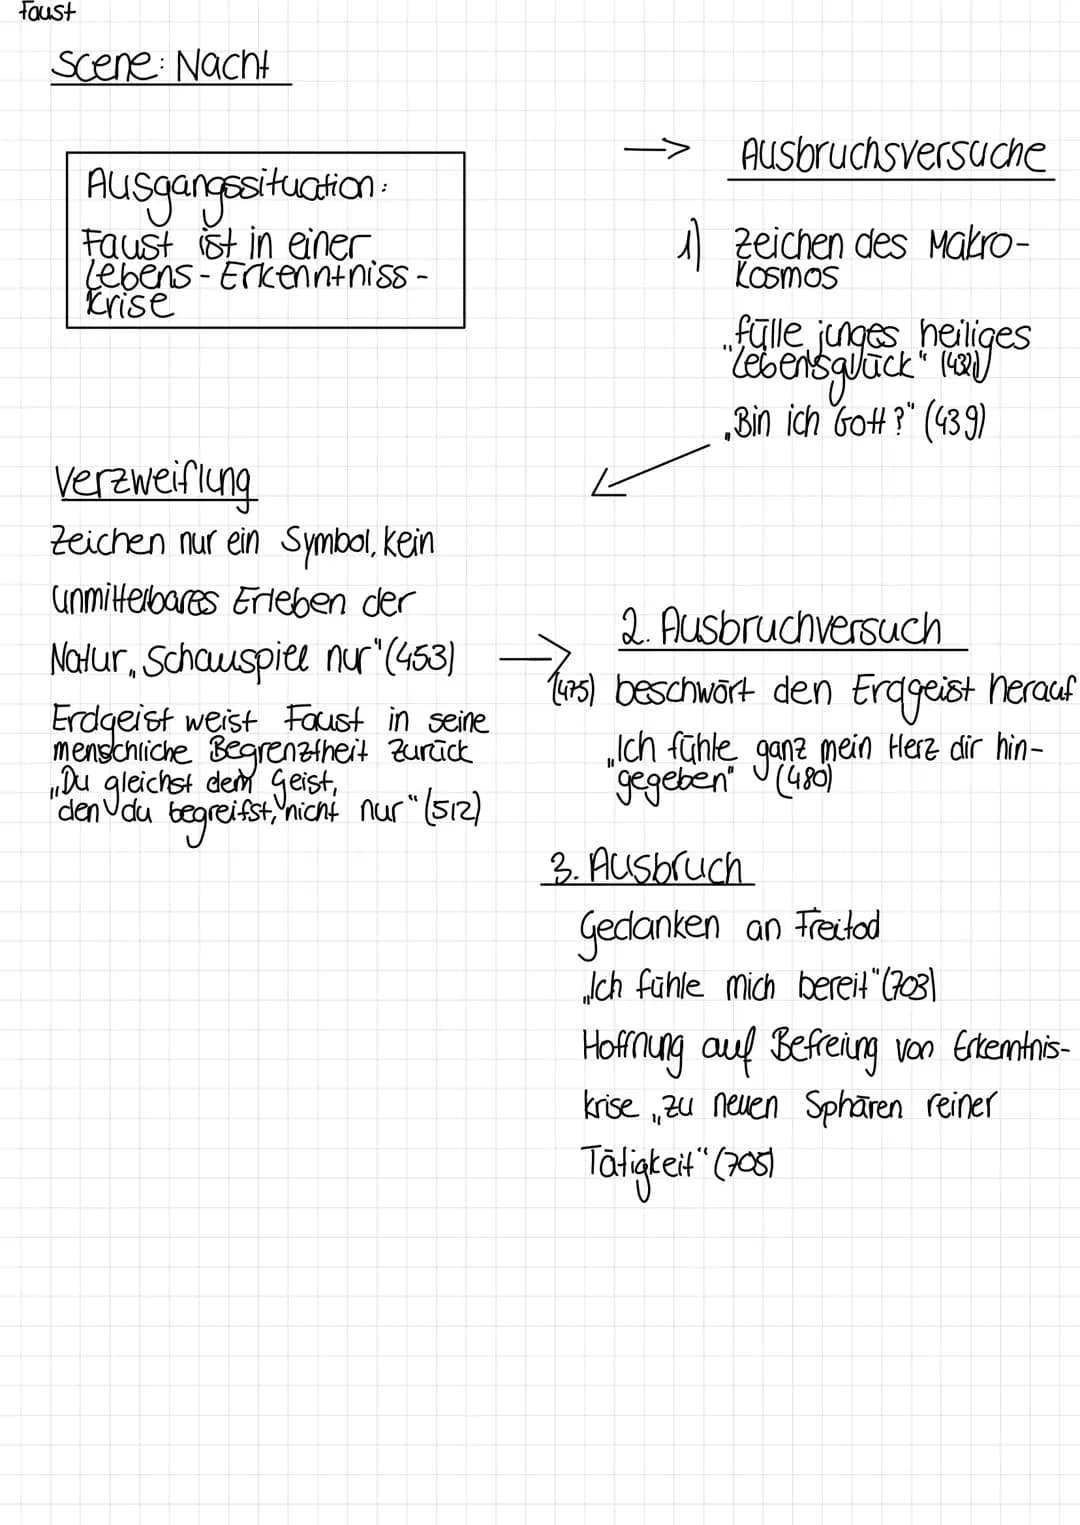 Faust
Scene: Nacht
Ausgangssituation:
Faust ist in einer
Lebens-Erkenntniss-
krise
-> Ausbruchsversuche
1) Zeichen des Makro-
kosmos
„fülle junges heiliges
Lebensglück" (432)
„Bin ich Gott?" (439)
Verzweiflung
Zeichen nur ein Symbol, kein
unmittelbares Erleben der
Natur „Schauspiel nur" (453)
Erdgeist weist Faust in seine
menschliche Begrenztheit zurück
„Du gleichst dem Geist,
den du begreifst, nicht nur" (512)
2. Ausbruchversuch
(475) beschwört den Erdgeist herauf
„Ich fühle ganz mein Herz dir hin-
gegeben" (480)
3. Ausbruch
Gedanken an Freitod
„Ich fühle mich bereit" (703)
Hoffnung auf Befreiung von Erkenntnis-
krise „zu neuen Sphären reiner
Tätigkeit" (705)